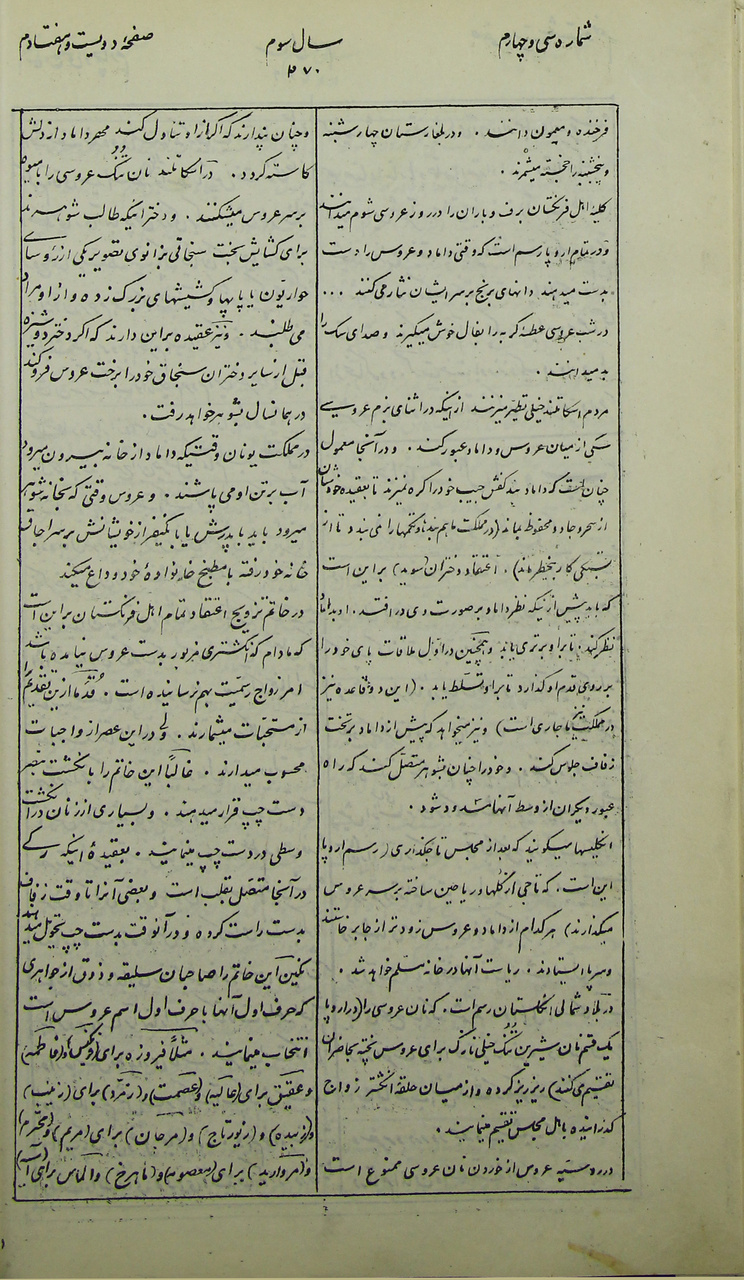 شماره سی و چهارم
سال سوم
صفحهٔ دویست و هفتادم
۲۷۰
فرخنده و میمون دانند . و در بلغارستان چهارشنبه
و پنجشنبه را خجسته میشمرند .
کلیهٔ اهل فرنگستان برف و باران را در روز عروسی شوم میدانند
و در تمام اروپا رسم است که وقتی داماد و عروس را دست
بدست میدهند دانهای برنج بر سر ایشان نثار می کنند ...
در شب عروسی عطسهٔ گربه را بفال خوش میگیرند و صدای سگ را
بد میدانند .
مردم اسکاتلند خیلی تطیر میزنند از اینکه در اثنای بزم عروسی
سگی از میان عروس و داماد عبور کند . و در آنجا معمول
چنان است که داماد بند کفش چپ خود را گره نمیزند تا بعقیده خودشان
از سحر و جادو محفوظ بماند (در مملکت ما هم بند و تکمها را نمی بندند تا از
بستگی کار بیخطر ماند) . اعتقاد دختران (سوید) بر این است
که باید پیش از اینکه نظر داماد بر صورت وی در افتد . او بداماد
نظر کند . تا بر او برتری یابد و همچنین در اول ملاقات پای خود را
بر روی قدم او گذارد تا بر او تسلط یابد . (این دو قاعده نیز
در مملکت ما جاری است) و نیز میخواهد که پیش از داماد بر تخت
زفاف جلوس کند . و خود را چنان بشوهر متصل کند که راه
عبور دیگران از وسط آنها مسدود شود .
انگلیسها میگویند که بعد از مجلس تاجگذاری (رسم اروپا
این است . که تاجی از گلها و ریاحین ساخته بر سر عروس
میگذارند) هر کدام از داماد و عروس زودتر از جا برخاستند
و سر پا ایستادند . ریاست آنها در خانه مسلم خواهد شد .
در بلاد شمالی انگلستان رسم است . که نان عروسی را (در اروپا
یک قسم نان شیرین تنک خیلی نازک برای عروس پخته بحاضران
تقسیم می کنند) ریز ریز کرده و از میان حلقهٔ انگشتر زواج
گذرانیده باهل مجلس تقسیم مینمایند .
در روسیه عروس از خوردن نان عروسی ممنوع است
و چنان پندارند که اگر از او تناول کند مهر داماد از دلش
کاسته گردد . در اسکاتلند نان تنک عروسی را با میوه
بر سر عروس میشکنند . و دخترانیکه طالب شوهرند
برای گشایش بخت سنجاقی بزانوی تصویر یکی از رؤسای
حواریون یا پاپها و کشیشهای بزرگ زده و از او مراد
می طلبند . و نیز عقیده بر این دارند که اگر دختر دوشیزه
قبل از سایر دختران سنجاق خود را برخت عروس فرو کند
در همانسال بشوهر خواهد رفت .
در مملکت یونان وقتیکه داماد از خانه بیرون میرود
آب بر تن او می پاشند . و عروس وقتی که بخانه شوهر
میرود باید با پدرش یا با یکنفر از خویشانش بر سر اجاق
خانه خود رفته با مطبخ خانواده خود وداع میکند
در خاتم تزویج اعتقاد تمام اهل فرنگستان بر این است
که مادام که انگشتری مزبور بدست عروس نیامده باشد
امر زواج رسمیت بهم نرسانیده است . قدما ازین تقدیم را
از مستحبات میشمارند . ولی در این عصر از واجبات
محسوب میدارند . غالباً این خاتم را بانگشت بنصر
دست چپ قرار میدهند . و بسیاری از زنان در انگشت
وسطی در دست چپ مینمایند . بعقیدهٔ اینکه رگی
در آنجا متصل بقلب است و بعضی آنرا تا وقت زفاف
بدست راست کرده و در آنوقت بدست چپ تحویل میدهند
نگین این خاتم را صاحبان سلیقه و ذوق از جواهری
که حرف اول آنها با حرف اول اسم عروس است
انتخاب مینمایند . مثلاً فیروزه برای (فرنگیس) و (فاطمه)
و عقیق برای (عالیه) و (عصمت) و (زمرد) برای (زینب)
و (زبیده) و (زیور تاج) و (مرجان) برای (مریم) و (محترم)
و (مروارید) برای (معصومه) و (ماهرخ) و الماس برای